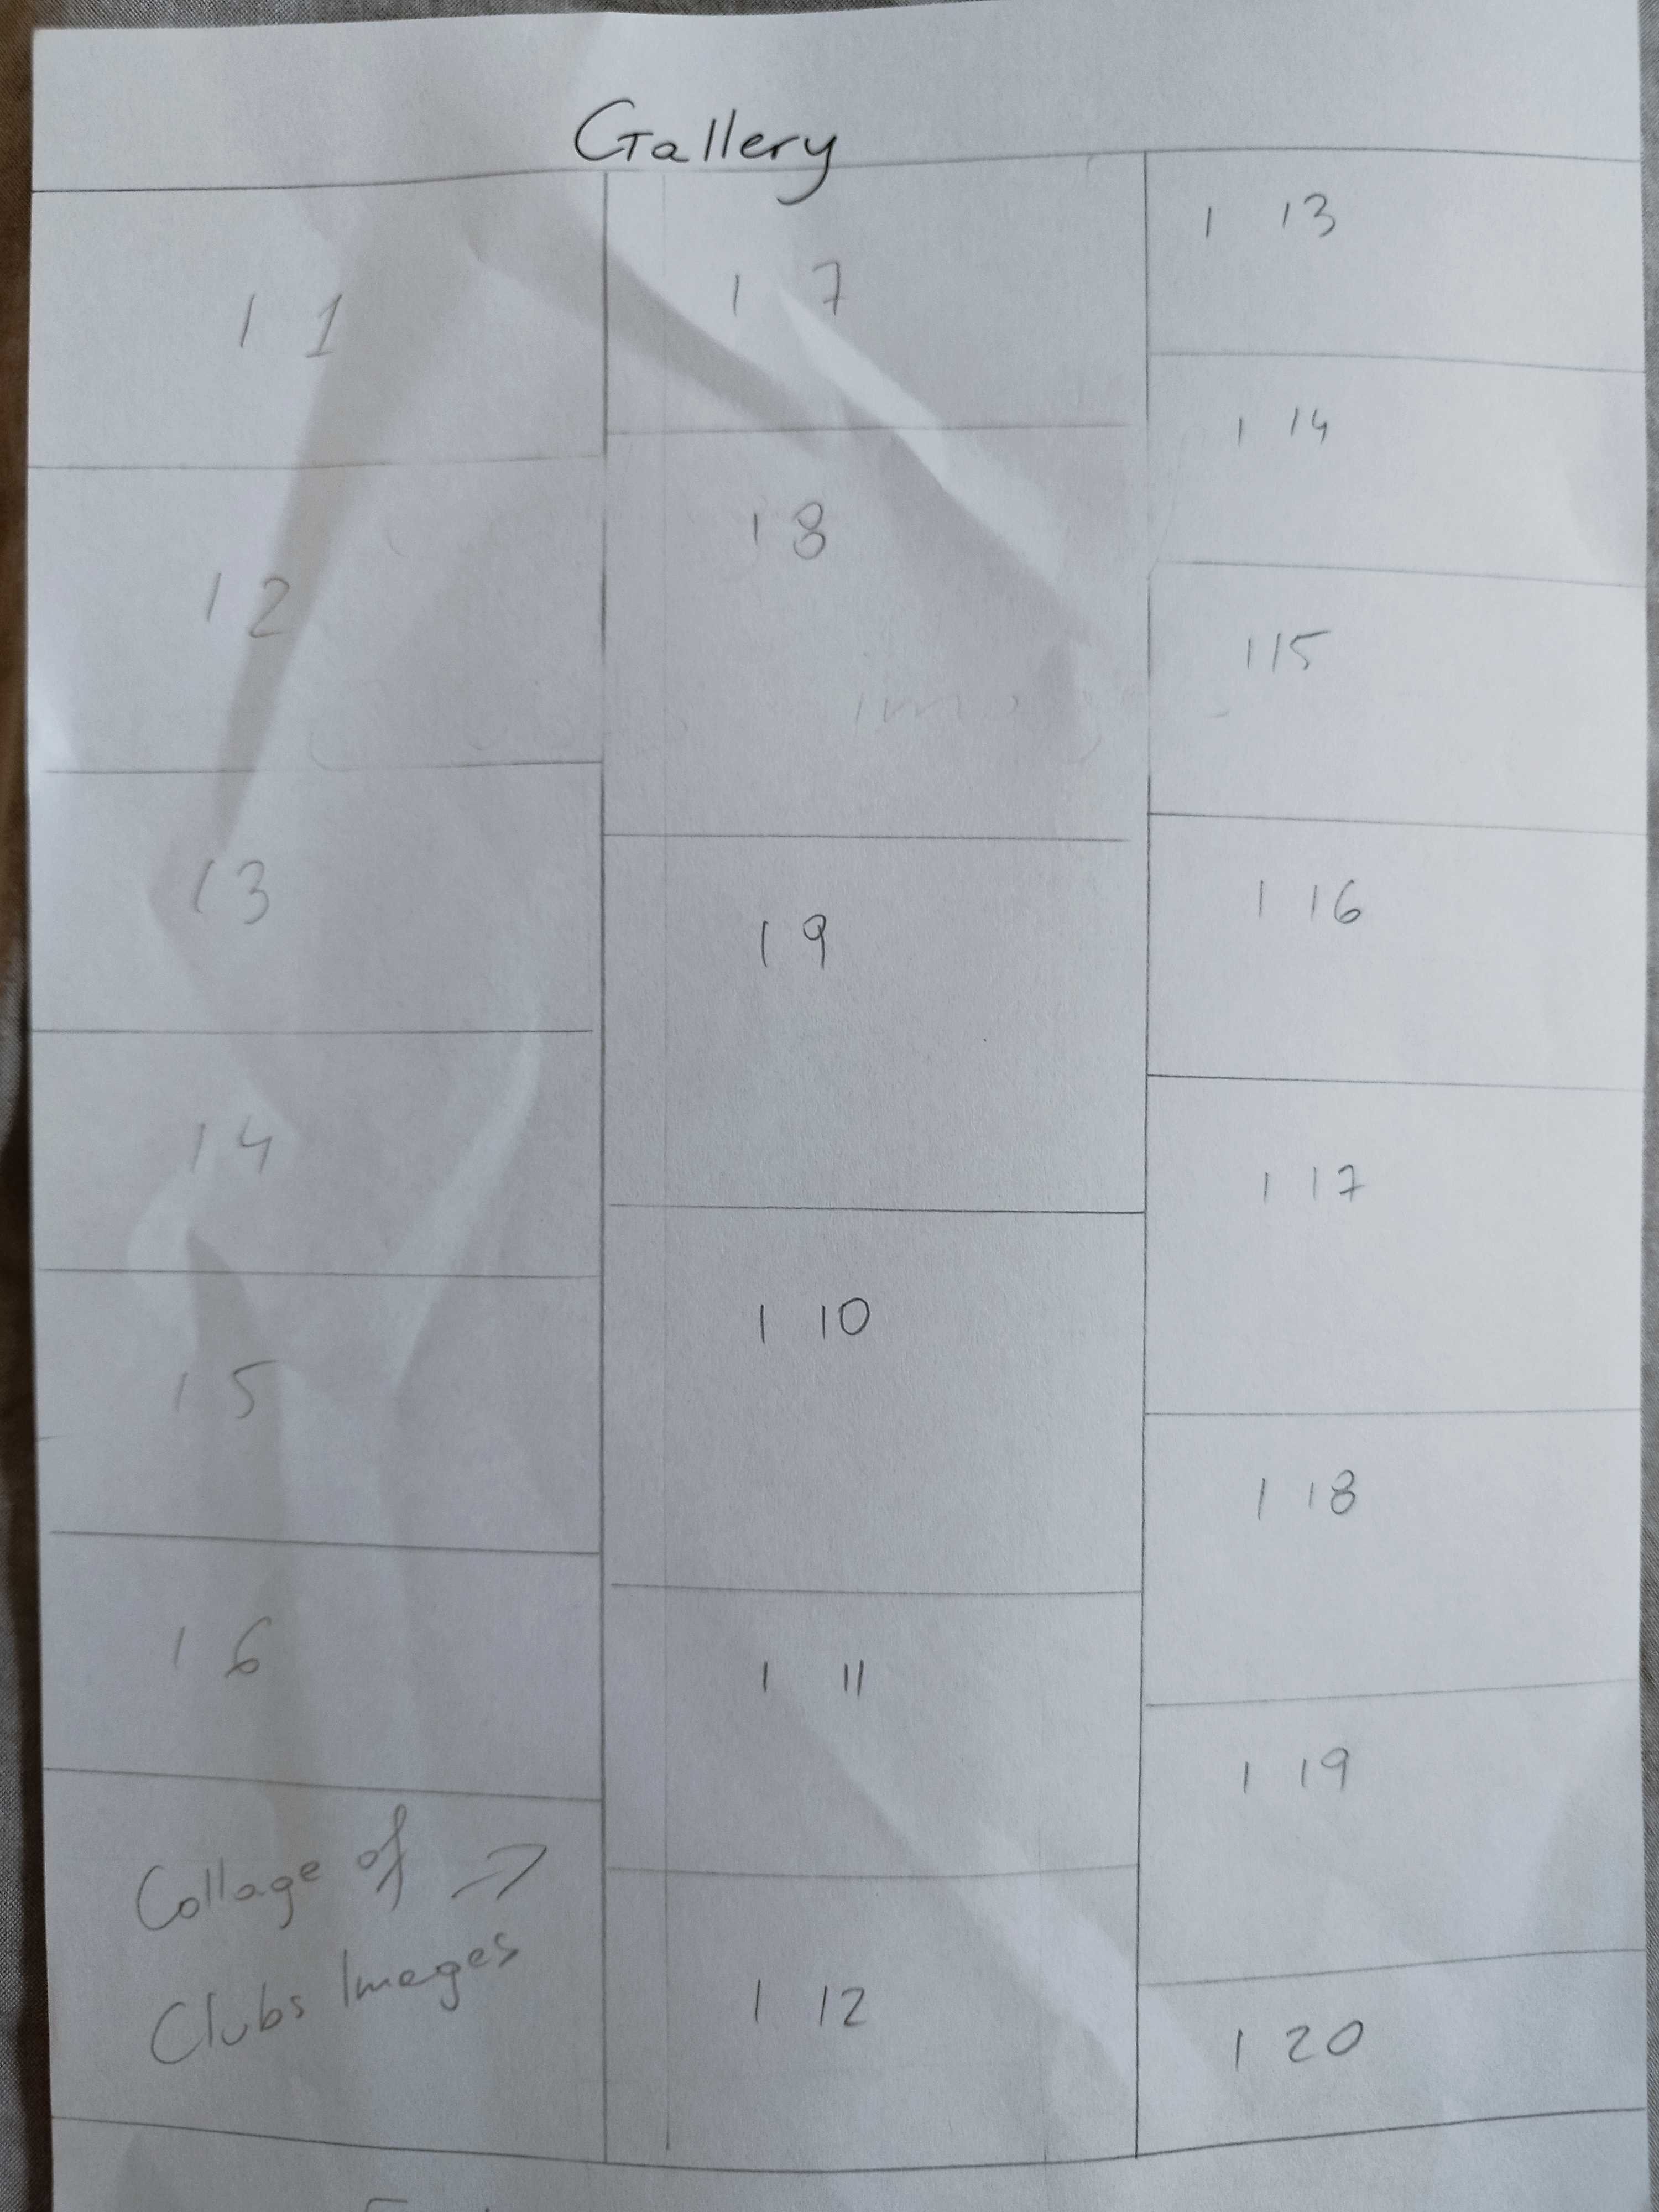 Gallery
I 1
I 2
I 3
I 4
I 5
I 6
Collage of →
Clubs Images
I 7
I 8
I 9
I 10
I 11
I 12
I 13
I 14
I 15
I 16
I 17
I 18
I 19
I 20